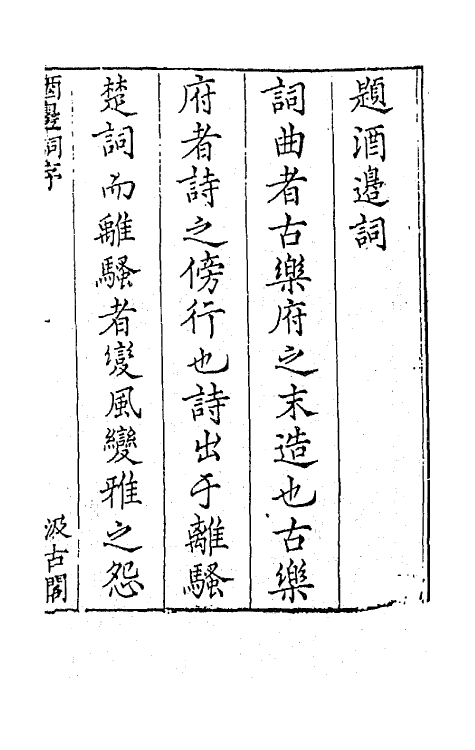 題酒邊詞
詞曲者古樂府之末造也古樂
府者詩之傍行也詩出于離騷
楚詞而離騷者變風變雅之怨
酒邊詞序
一
汲古閣